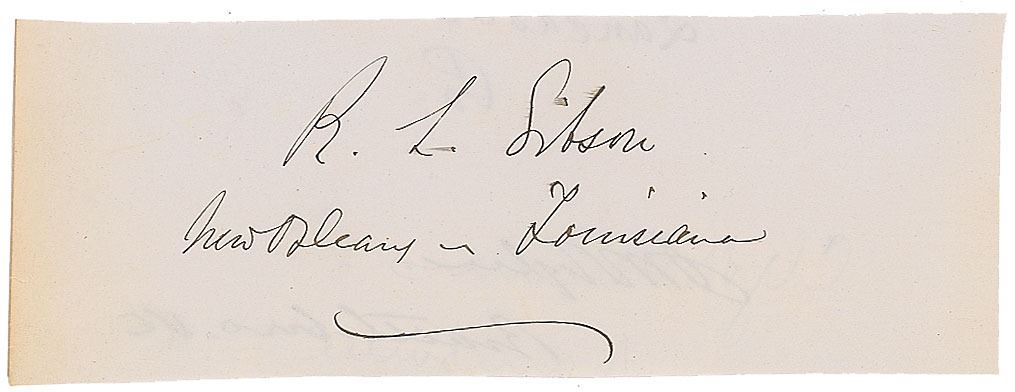 R. L. Gibson
New Orleans - Louisiana